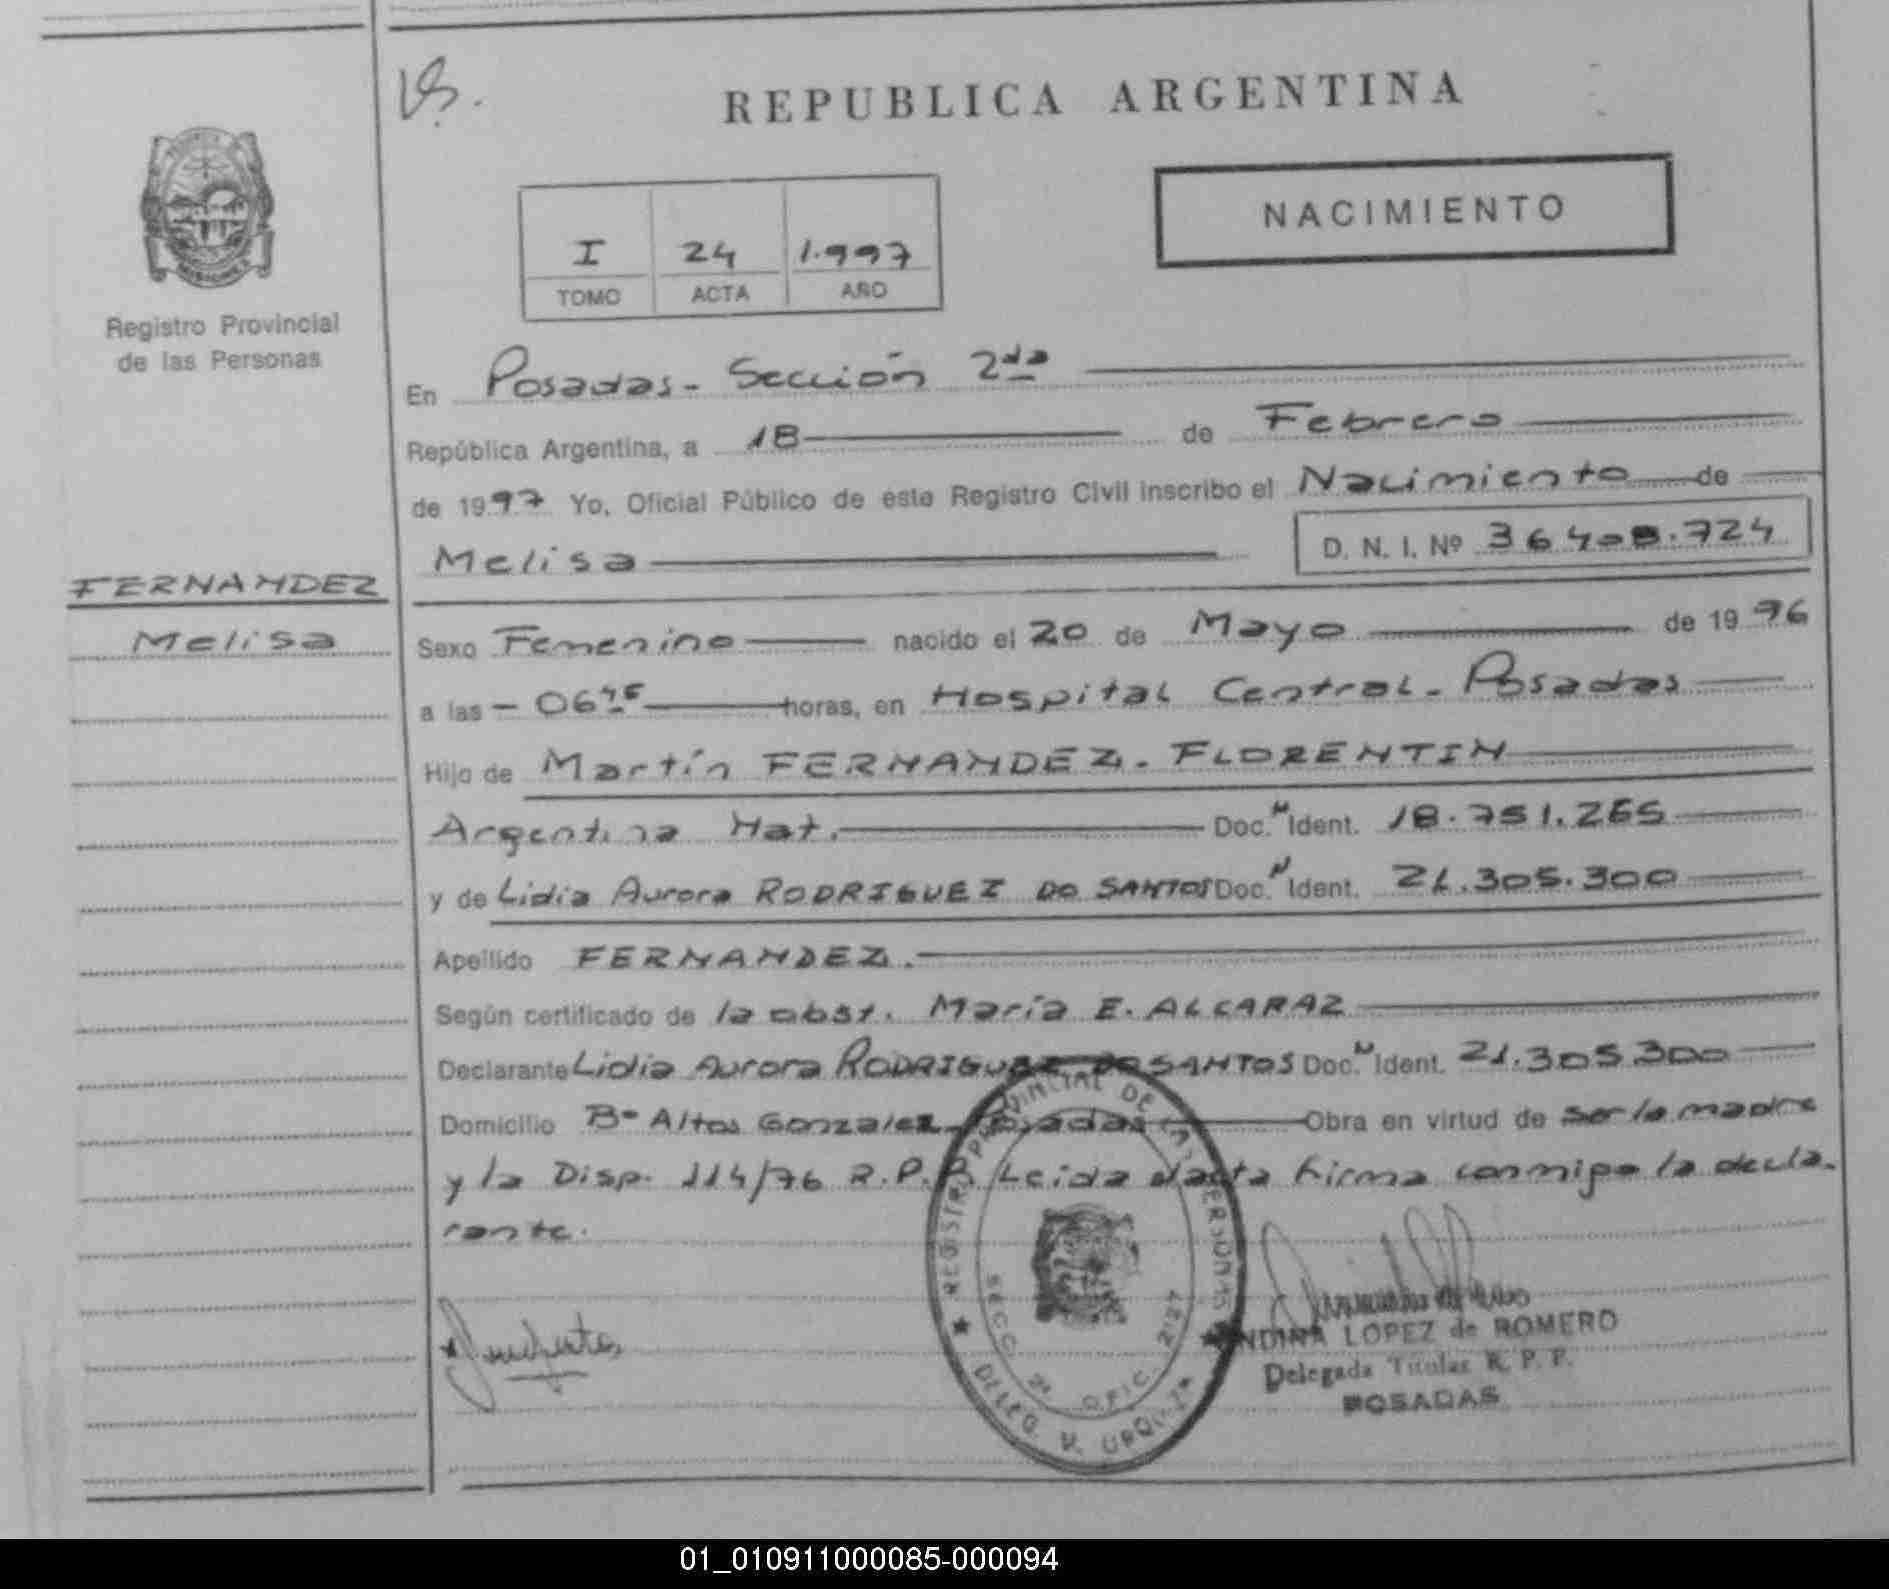 REPUBLICA ARGENTINA
NACIMIENTO
I 24 1.997
TOMO ACTA AÑO
Registro Provincial
de las Personas
En Posadas - Sección 2da
República Argentina, a 18 de Febrero
de 1997 Yo, Oficial Público de este Registro Civil inscribo el Nacimiento de
Melisa D. N. I. Nº 36.408.724
FERNANDEZ
Melisa
Sexo Femenino nacido el 20 de Mayo de 1996
a las - 06 45 horas, en Hospital Central - Posadas
Hijo de Martín FERNANDEZ - FLORENTIN
Argentina Nat. Doc. N Ident. 18.751.265
y de Lidia Aurora RODRIGUEZ DO SANTOS Doc. N Ident. 21.305.300
Apellido FERNANDEZ.
Según certificado de la obst. María E. ALCARAZ
Declarante Lidia Aurora RODRIGUEZ DO SANTOS Doc. N Ident. 21.305.300
Domicilio Bº Altos Gonzalez - Posadas Obra en virtud de ser la madre
y la Disp. 114/76 R.P.P. Leida el acta firma conmigo la decla-
rante.
REGISTRO PROVINCIAL DE LAS PERSONAS
SECC. 2ª OFIC. 2127
DELEG. V. URQUIZA
INDIRA LOPEZ de ROMERO
Delegada Titular R. P. P.
POSADAS
01_010911000085-000094